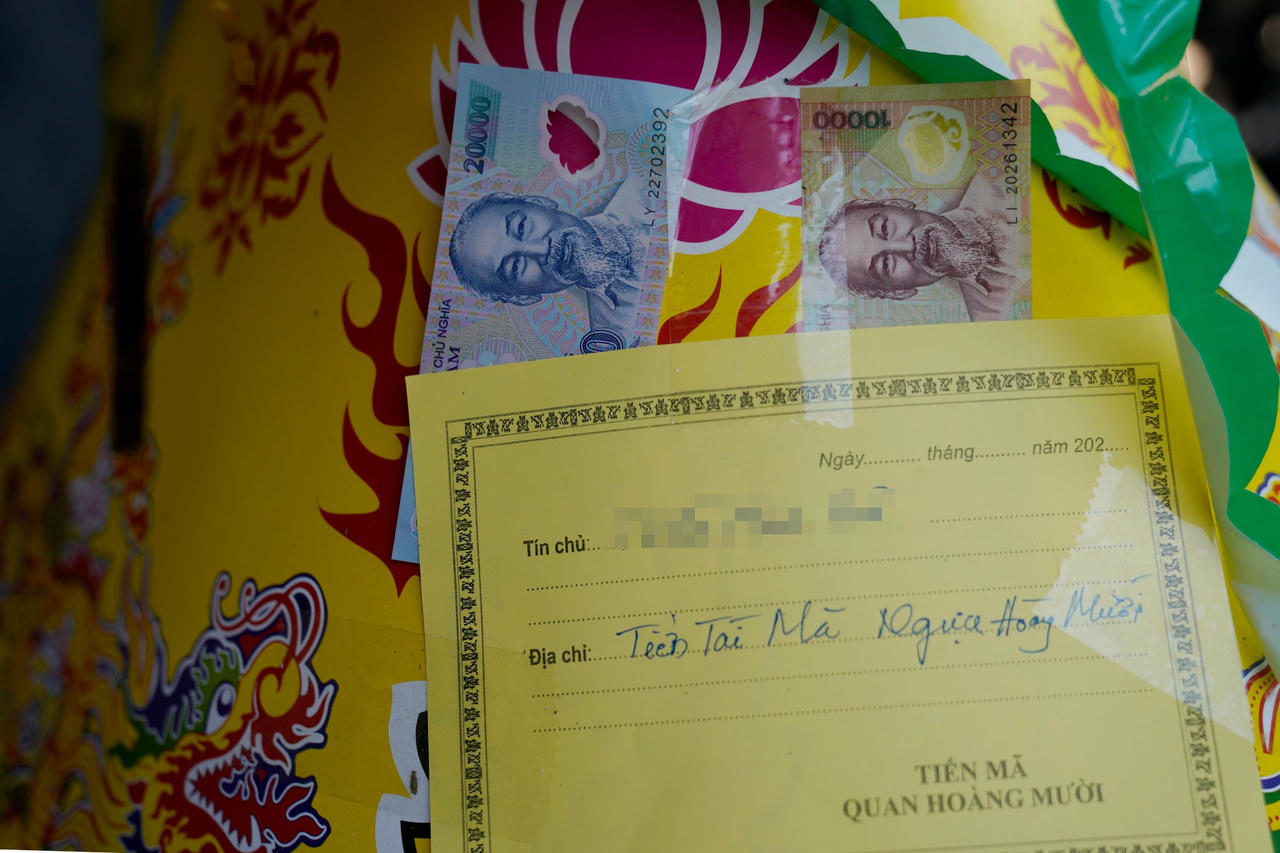 20000
LY 22702392
CHỦ NGHĨA
10000
LI 20261342
Ngày.......... tháng......... năm 202....
Tín chủ:
Địa chỉ: Tiến Tài Mã Ngựa Hoàng Mười
TIẾN MÃ
QUAN HOÀNG MƯỜI